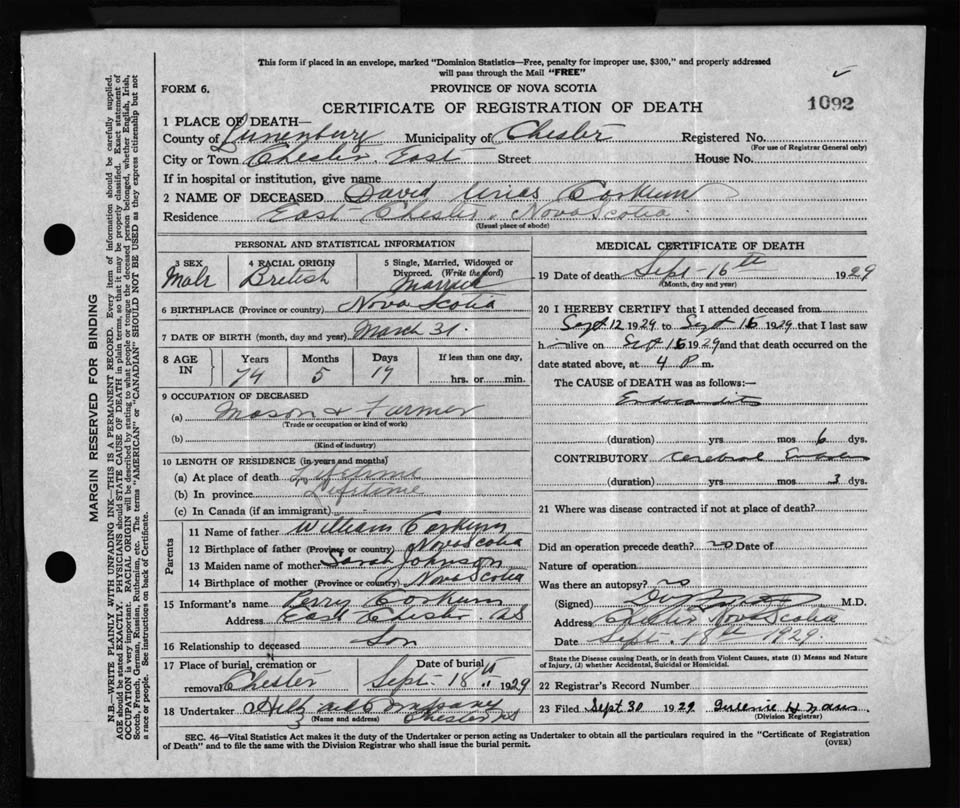 This form if placed in an envelope, marked "Dominion Statistics—Free, penalty for improper use, $300," and properly addressed
will pass through the Mail "FREE"
FORM 6.
PROVINCE OF NOVA SCOTIA
1092
CERTIFICATE OF REGISTRATION OF DEATH
1 PLACE OF DEATH—
County of Lunenburg Municipality of Chester Registered No.
(For use of Registrar General only)
City or Town Chester East Street House No.
If in hospital or institution, give name
2 NAME OF DECEASED David Urias Corkum
Residence East Chester, Nova Scotia
(Usual place of abode)
PERSONAL AND STATISTICAL INFORMATION
3 SEX Male
4 RACIAL ORIGIN British
5 Single, Married, Widowed or
Divorced. (Write the word)
Married
6 BIRTHPLACE (Province or country) Nova Scotia
7 DATE OF BIRTH (month, day and year) March 31.
8 AGE IN
Years Months Days If less than one day,
74 5 17 hrs. or min.
9 OCCUPATION OF DECEASED
(a) Mason & Farmer
(Trade or occupation or kind of work)
(b)
(Kind of industry)
10 LENGTH OF RESIDENCE (in years and months)
(a) At place of death Lifetime
(b) In province Lifetime
(c) In Canada (if an immigrant)
Parents
11 Name of father William Corkum
12 Birthplace of father (Province or country) Nova Scotia
13 Maiden name of mother Sarah Johnson
14 Birthplace of mother (Province or country) Nova Scotia
15 Informant's name Perry Corkum
Address East Chester N.S
16 Relationship to deceased Son
17 Place of burial, cremation or
removal Chester
Date of burial
Sept 18th 1929
18 Undertaker Company
(Name and address) Chester N.S
MEDICAL CERTIFICATE OF DEATH
19 Date of death Sept-16th 1929
(Month, day and year)
20 I HEREBY CERTIFY that I attended deceased from
Sept 12 1929 to Sept 16 1929 that I last saw
h im alive on Sept 16 1929 and that death occurred on the
date stated above, at 4 P.m.
The CAUSE of DEATH was as follows:—
Endocarditis
(duration) yrs mos 6 dys.
CONTRIBUTORY Cerebral
(duration) yrs mos 3 dys.
21 Where was disease contracted if not at place of death?
Did an operation precede death? no Date of
Nature of operation
Was there an autopsy? no
(Signed) M.D.
Address Chester Nova Scotia
Date Sept. 18th 1929.
State the Disease causing Death, or in death from Violent Causes, state (1) Means and Nature
of Injury, (2) whether Accidental, Suicidal or Homicidal.
22 Registrar's Record Number
23 Filed Sept 30 1929
(Division Registrar)
SEC. 46—Vital Statistics Act makes it the duty of the Undertaker or person acting as Undertaker to obtain all the particulars required in the "Certificate of Registration
of Death" and to file the same with the Division Registrar who shall issue the burial permit.
(OVER)
MARGIN RESERVED FOR BINDING
N.B—WRITE PLAINLY WITH UNFADING INK—THIS IS A PERMANENT RECORD. Every item of information should be carefully supplied.
AGE should be stated EXACTLY. PHYSICIANS should STATE CAUSE OF DEATH in plain terms, so that it may be properly classified. Exact statement of
OCCUPATION is very important. RACIAL ORIGIN will be described by stating to what people or tongue the deceased person belonged, whether English, Irish,
Scotch, French, German, Russian, Ruthenian, etc. The terms "AMERICAN" or "CANADIAN" SHOULD NOT BE USED as they express citizenship but not
a race or people. See instructions on back of Certificate.